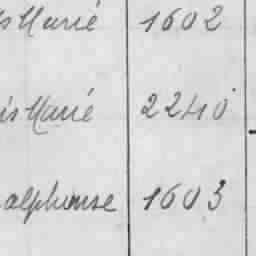 s Marié 1602
is Marié 2240
alphonse 1603